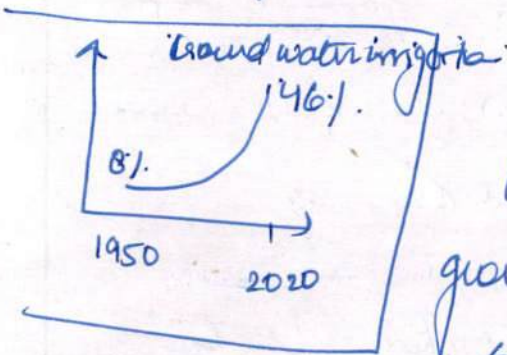 Ground water irrigation
46%.
8%.
1950
2020